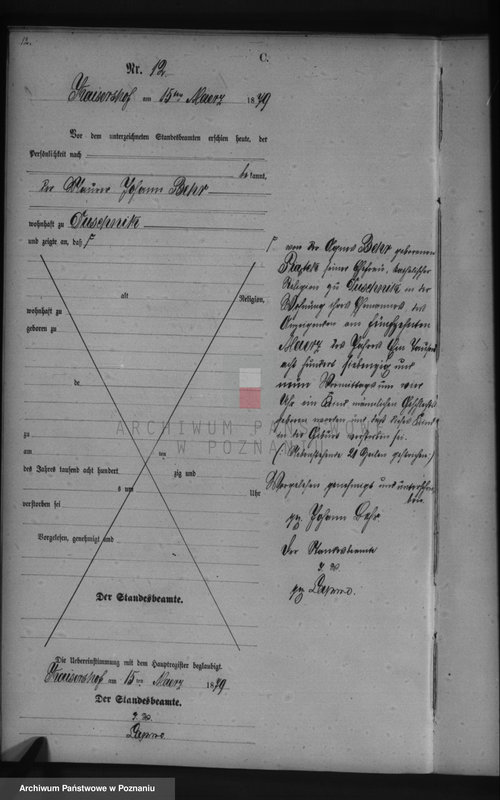 12.
C.
Nr. 12
Kaisershof am 15ten Maerz 1879
Vor dem unterzeichneten Standesbeamten erschien heute, der
Persönlichkeit nach
bekannt,
der Maurer Johann Behr
wohnhaft zu Duschnik
und zeigte an, daß
alt Religion,
wohnhaft zu
geboren zu
de
zu
am ten
des Jahres tausend acht hundert zig und
s um Uhr
verstorben sei
Vorgelesen, genehmigt und
Der Standesbeamte.
von der Agnes Behr geborenen
seiner Ehefrau, katholischer
Religion zu Duschnik in der
Wohnung ihres Ehemannes des
Anzeigenden am fünfzehnten
Maerz des Jahres Ein Tausend
acht hundert siebenzig und
neun Vormittags um vier
Uhr ein Kind männlichen Geschlechts
geboren worden und daß dieses Kind
in der Geburt verstorben sei.
Vorgelesen genehmigt und unterschrie-
ben
gez Johann Behr
Der Standesbeamte
Die Uebereinstimmung mit dem Hauptregister beglaubigt.
Kaisershof am 15ten Maerz 1879
Der Standesbeamte.
ARCHIWUM PAŃSTWOWE
W POZNANIU
Archiwum Państwowe w Poznaniu